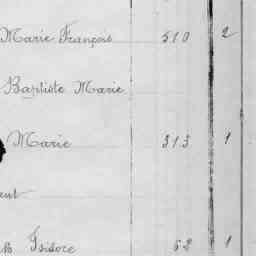 Marie François 510 2
Baptiste Marie
Marie 313 1
Isidore 52 1